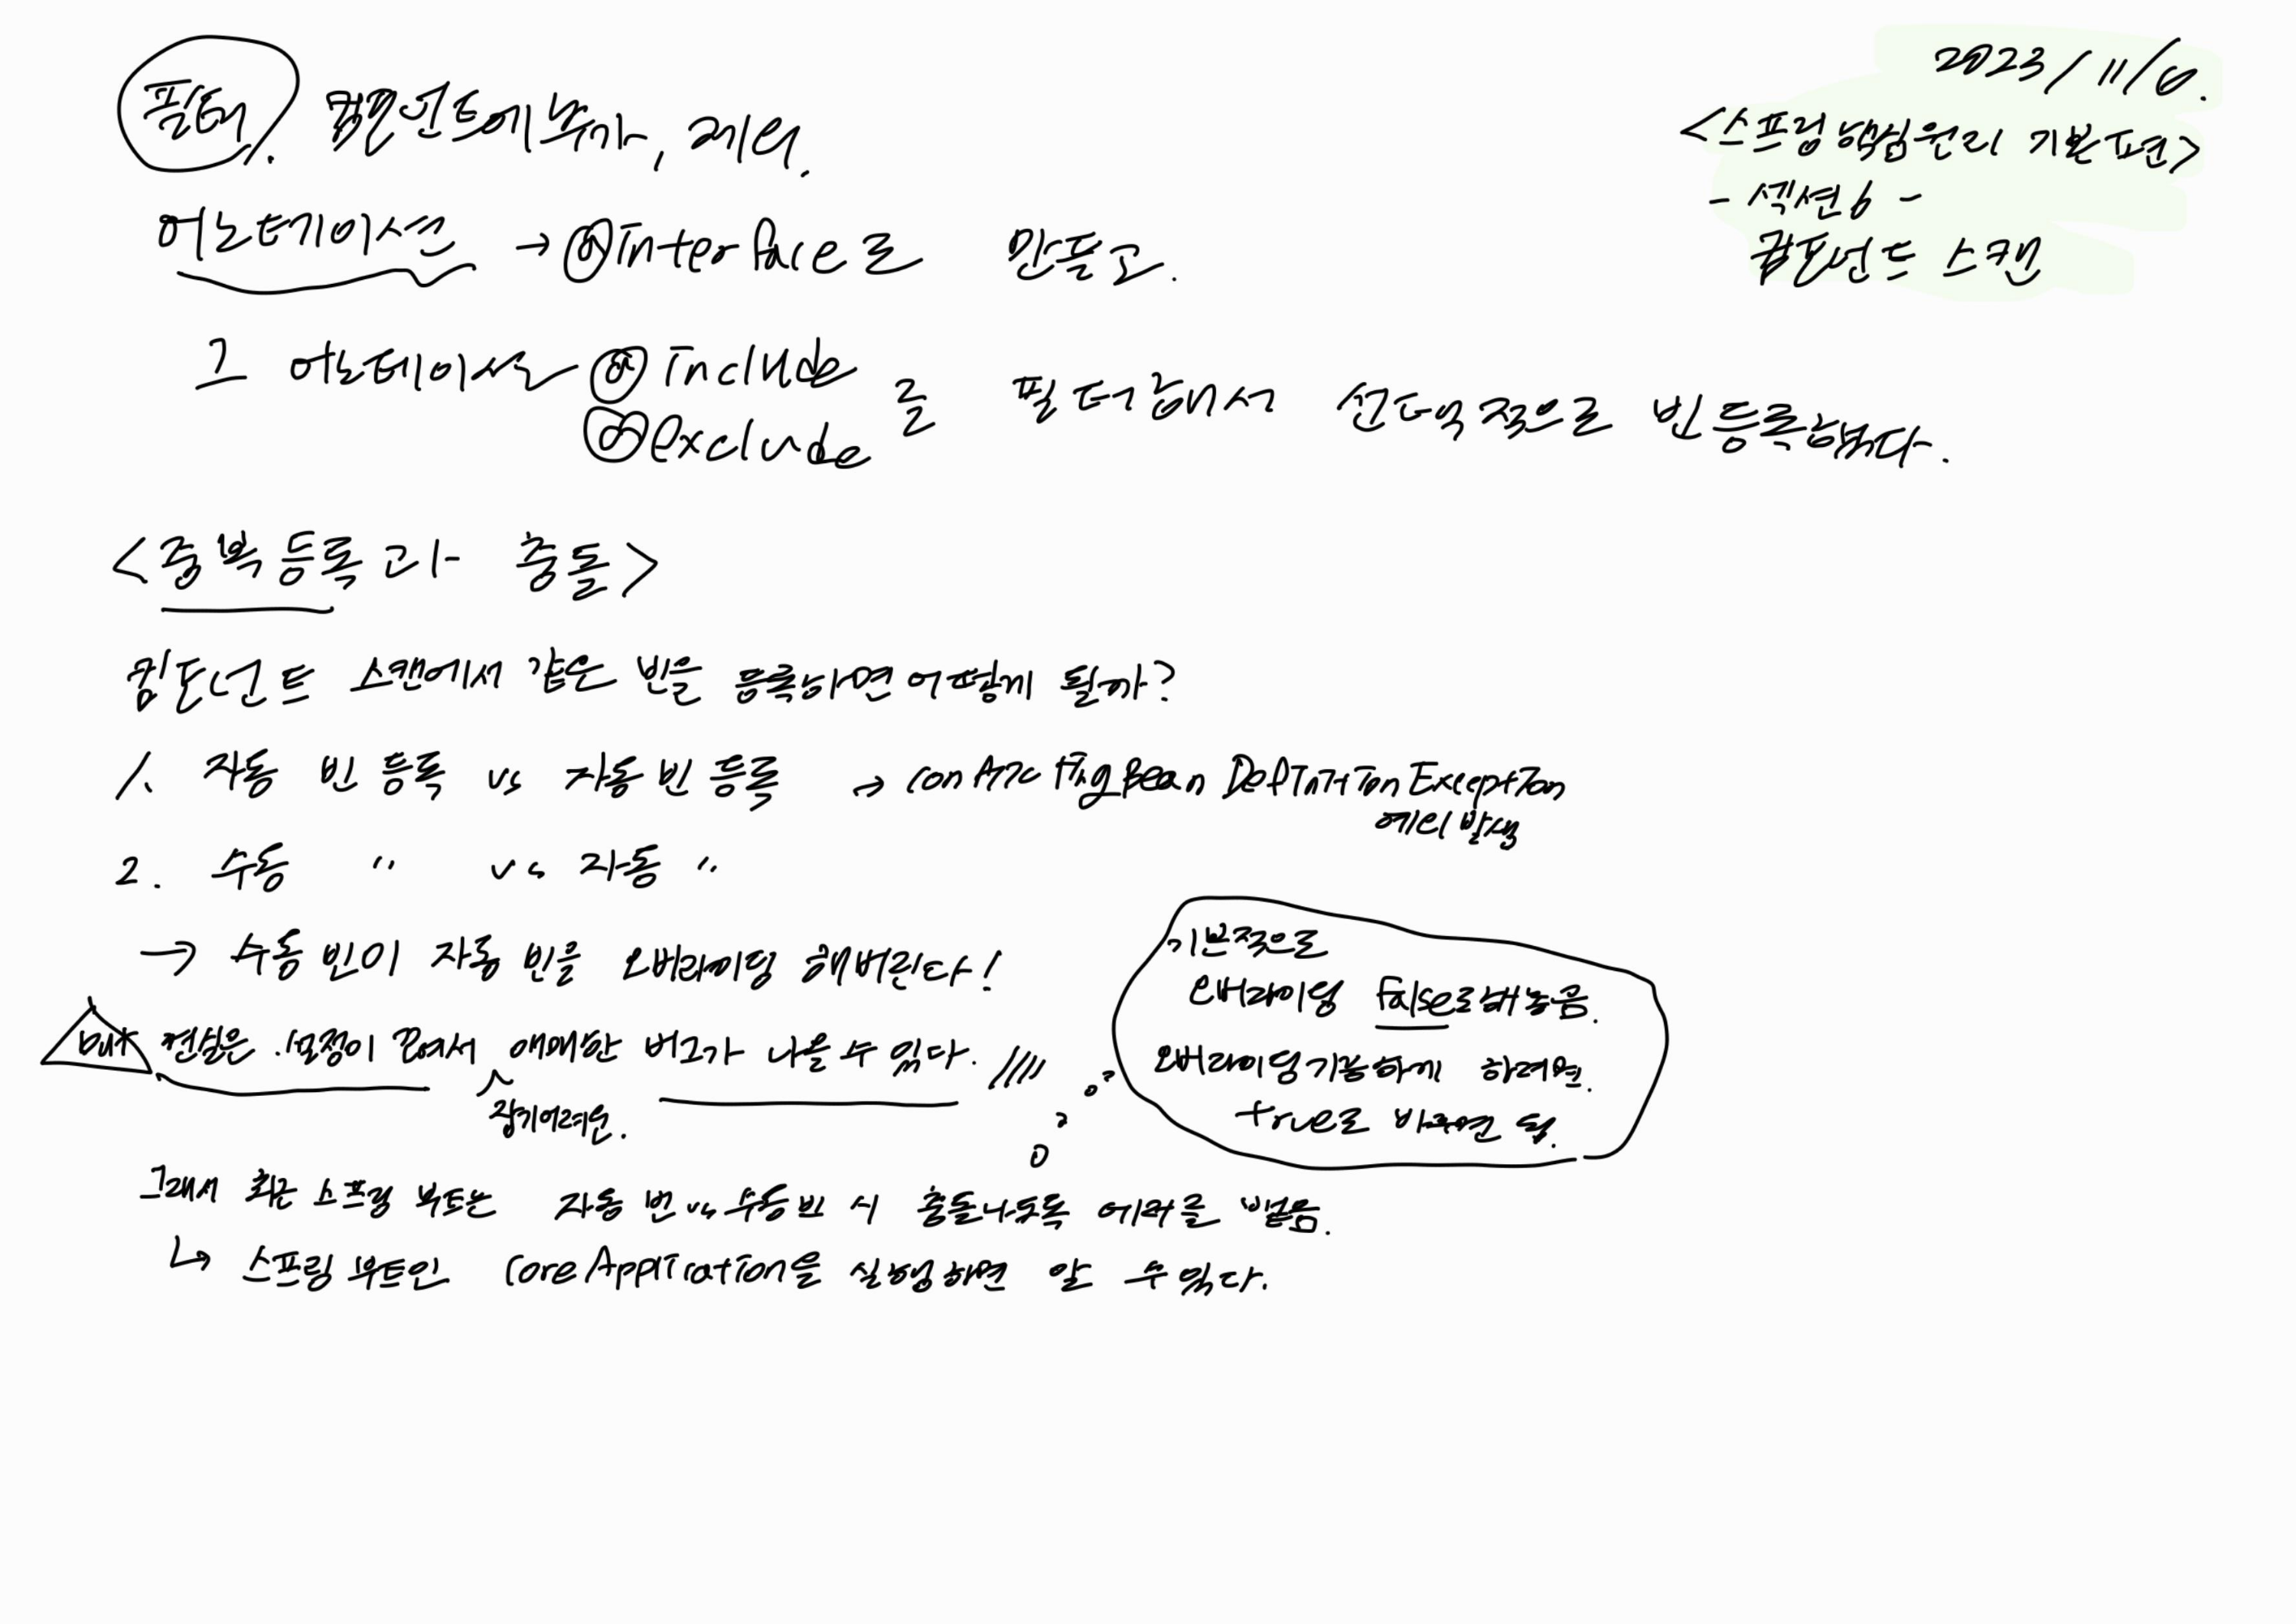 2023/11/6.
<스프링 핵심원리 기본편>
- 섹션6 -
컴포넌트 스캔
필터. 컴포넌트에 추가, 제외.
어노테이션 → @interface로 만들고.
그 어노테이션 @include
@exclude 를 필터 해서 선택적으로 빈 등록한다.
<중복 등록과 충돌>
컴포넌트 스캔에서 같은 빈을 등록하면 어떻게 될까?
1. 자동 빈 등록 vs 자동 빈 등록 → ConflictingBeanDefinitionException
에러 발생
2. 수동 〃 vs 자동 〃
→ 수동 빈이 자동 빈을 오버라이딩 해버린다!
but 현실은 설정이 꼬여서 애매한 버그가 나올 수 있다.
잡기 어려운.
기본적으로
오버라이딩 false로 해놓음.
오버라이딩 가능하게 하려면.
true로 바꾸면 됨.
그래서 최근 스프링 부트는 자동 빈 vs 수동 빈 시 충돌나도록 에러를 뱉음.
↳ 스프링 부트인 CoreApplication을 실행하면 알 수 있다.